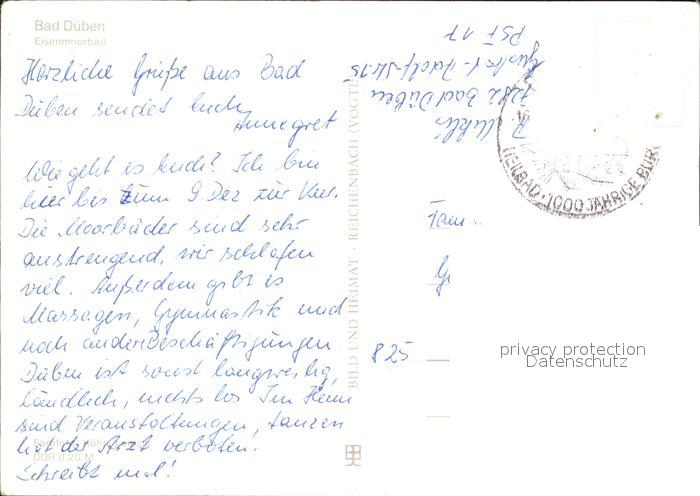 Bad Düben
Eisenmoorbad
Herzliche Grüße aus Bad
Düben sendet Euch
Annegret
Wie geht es Euch? Ich bin
hier bis zum 9. Dez zur Kur.
Die Moorbäder sind sehr
anstrengend, wir schlafen
viel. Außerdem gibt es
Massagen, Gymnastik und
noch andere Beschäftigungen
Düben ist sonst langweilig,
ländlich, nichts los Im Heim
sind Veranstaltungen, tanzen
hat der Arzt verboten.
Schreibt mal!
DDR 0,20 M
BILD UND HEIMAT · REICHENBACH (VOGTL
7282 Bad Düben
Gustav-Adolf-Str. 15
PSF 17
HEILBAD · 1000 JÄHRIGE BUR
Fam
825
privacy protection
Datenschutz